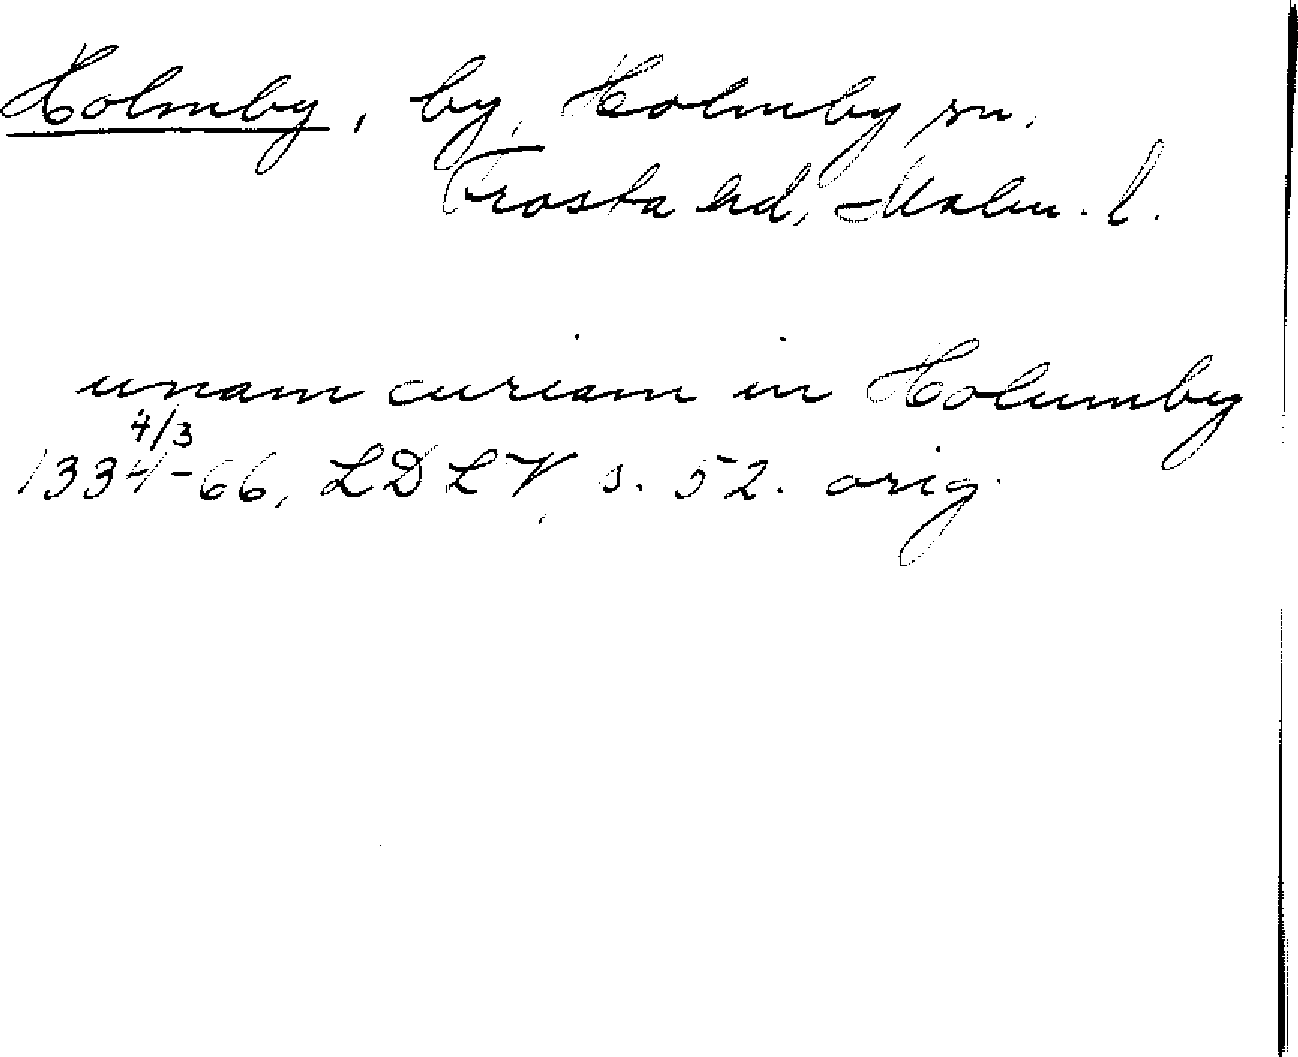 Holmby, by, Holmby sn.
Frosta hd, Malm. l.
unam curiam in Holumby
4/3
1334-66, LDLV, s. 52. orig.